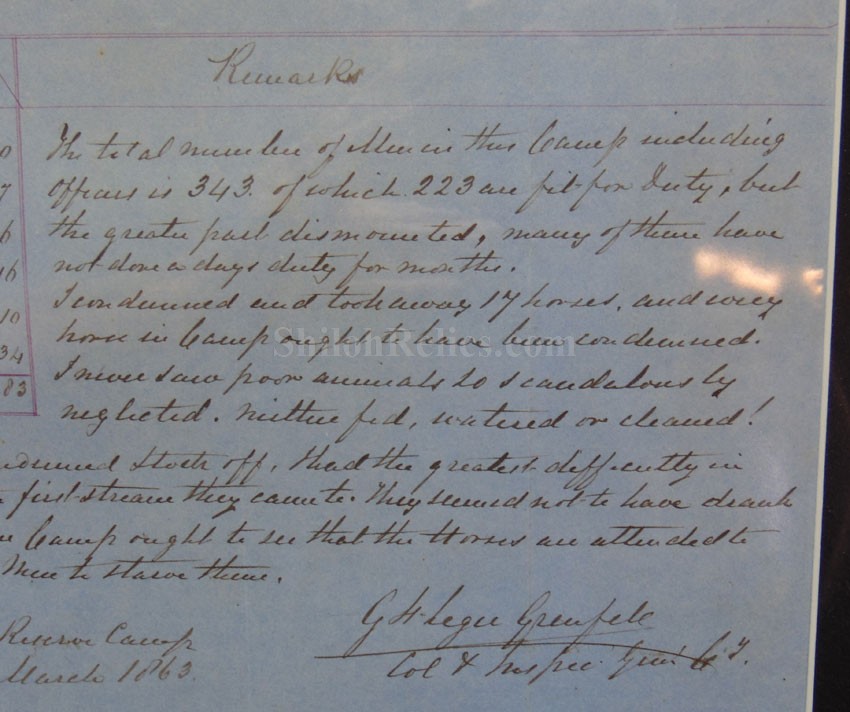 Remarks
0
7
6
16
10
34
83
The total number of Men in this Camp including
Officers is 343. of which 223 are fit for Duty, but
the greater part dismounted, many of them have
not done a days duty for months.
I condemned and took away 17 horses, and every
horse in Camp ought to have been condemned.
ShilohRelics.com
I never saw poor animals so scandalously
neglected. neither fed, watered or cleaned!
Stock off, I had the greatest difficulty in
first stream they came to. They seemed not to have drank
Camp ought to see that the Horses are attended to
Men to starve them.
G St Leger Grenfell
Col & Inspec. Genl
Reserve Camp
March 1863.